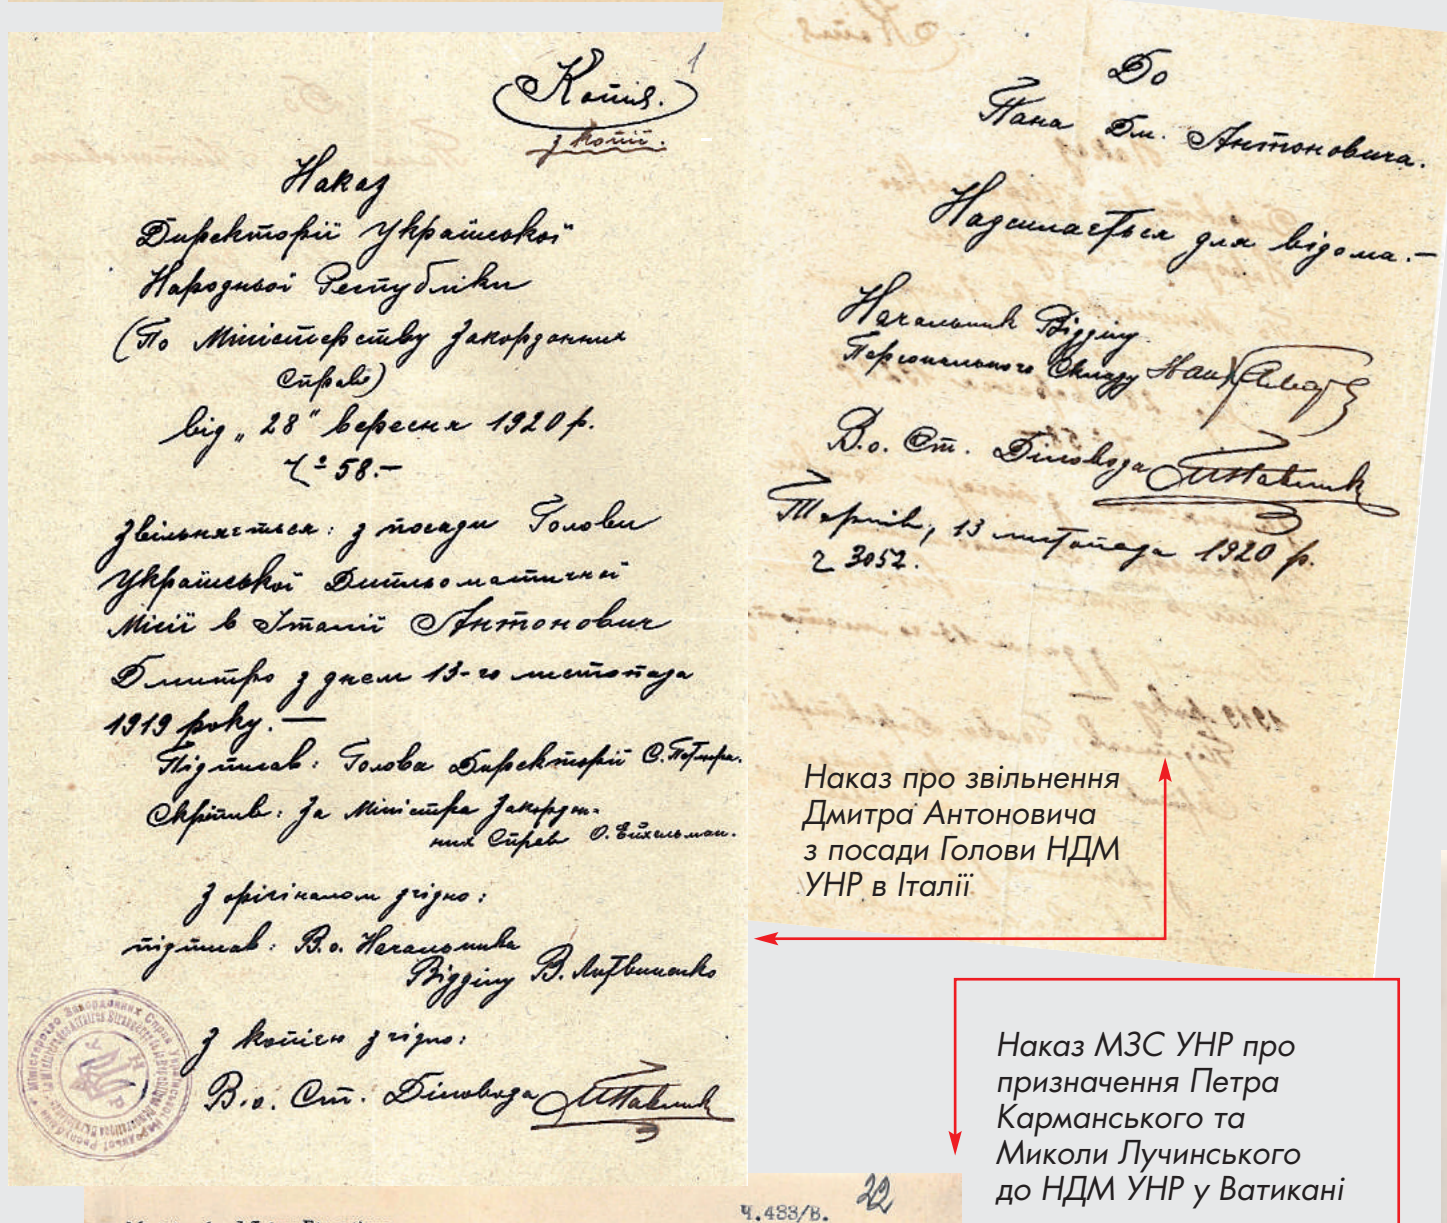 1
Копія.
з копії.
Наказ
Директорії Української
Народньої Республіки
(По Міністерству Закордонних
Справ)
від „28" вересня 1920 р.
Ч 58.—
Звільняється: з посади Голови
Української Дипльоматичної
Місії в Італії Антонович
Дмитро з днем 13-го листопада
1919 року. —
Підписав: Голова Директорії С. Петлюра.
Скріпив: За Міністра Закордон-
них Справ О. Ейхельман.
З орігіналом згідно:
підписав: В.о. Начальника
Відділу В. Литвиненко
З копією згідно:
В.о. Ст. Діловода
До
Пана Дм. Антоновича.
Надсилається для відома.—
Начальник Відділу
Персонального Складу
В.о. Ст. Діловода
Тарнів, 13 листопада 1920 р.
ч 3052.
Наказ про звільнення
Дмитра Антоновича
з посади Голови НДМ
УНР в Італії
Наказ МЗС УНР про
призначення Петра
Карманського та
Миколи Лучинського
до НДМ УНР у Ватикані
22
Ч.433/В.